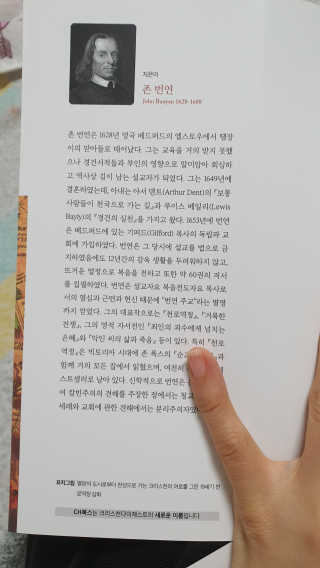 지은이
존 번연
John Bunyan 1628-1688
존 번연은 1628년 영국 베드퍼드의 엘스토우에서 땜장
이의 맏아들로 태어났다. 그는 교육을 거의 받지 못했
으나 경건서적들과 부인의 영향으로 말미암아 회심하
고 역사상 길이 남는 설교자가 되었다. 그는 1649년에
결혼하였는데, 아내는 아서 덴트(Arthur Dent)의 『보통
사람들이 천국으로 가는 길』과 루이스 베일리(Lewis
Bayly)의 『경건의 실천』을 가지고 왔다. 1653년에 번연
은 베드퍼드에 있는 기퍼드(Gifford) 목사의 독립파 교
회에 가입하였다. 번연은 그 당시에 설교를 법으로 금
지하였음에도 12년간의 감옥 생활을 두려워하지 않고,
뜨거운 열정으로 복음을 전하고 또한 약 60권의 저서
를 집필하였다. 번연은 설교자요 복음전도자요 목사로
서의 열심과 근면과 헌신 때문에 “번연 주교”라는 별명
까지 얻었다. 그의 대표작으로는 『천로역정』, 『거룩한
전쟁』, 그의 영적 자서전인 『죄인의 괴수에게 넘치는
은혜』와 『악인 씨의 삶과 죽음』 등이 있다. 특히 『천로
역정』은 빅토리아 시대에 존 폭스의 『순교
함께 거의 모든 집에서 읽혔으며, 여전히
스트셀러로 남아 있다. 신학적으로 번연은
어 칼빈주의의 견해를 주장한 점에서는 청교
세례와 교회에 관한 견해에서는 분리주의자였
표지그림 멸망의 도시로부터 천성으로 가는 크리스천의 여로를 그린 19세기 천
로역정 삽화
CH북스는 크리스천다이제스트의 새로운 이름입니다